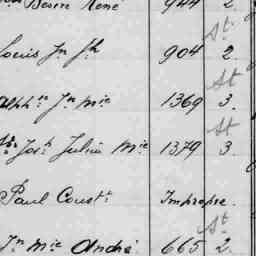 René 944 2
Louis Jn Jh 904 St 2.
Alph.se Jn Mie 1369 St 3.
Josh Julien Mie 1379 St 3.
Paul Const.t Impropre.
Jn Mie André 665 St 2.